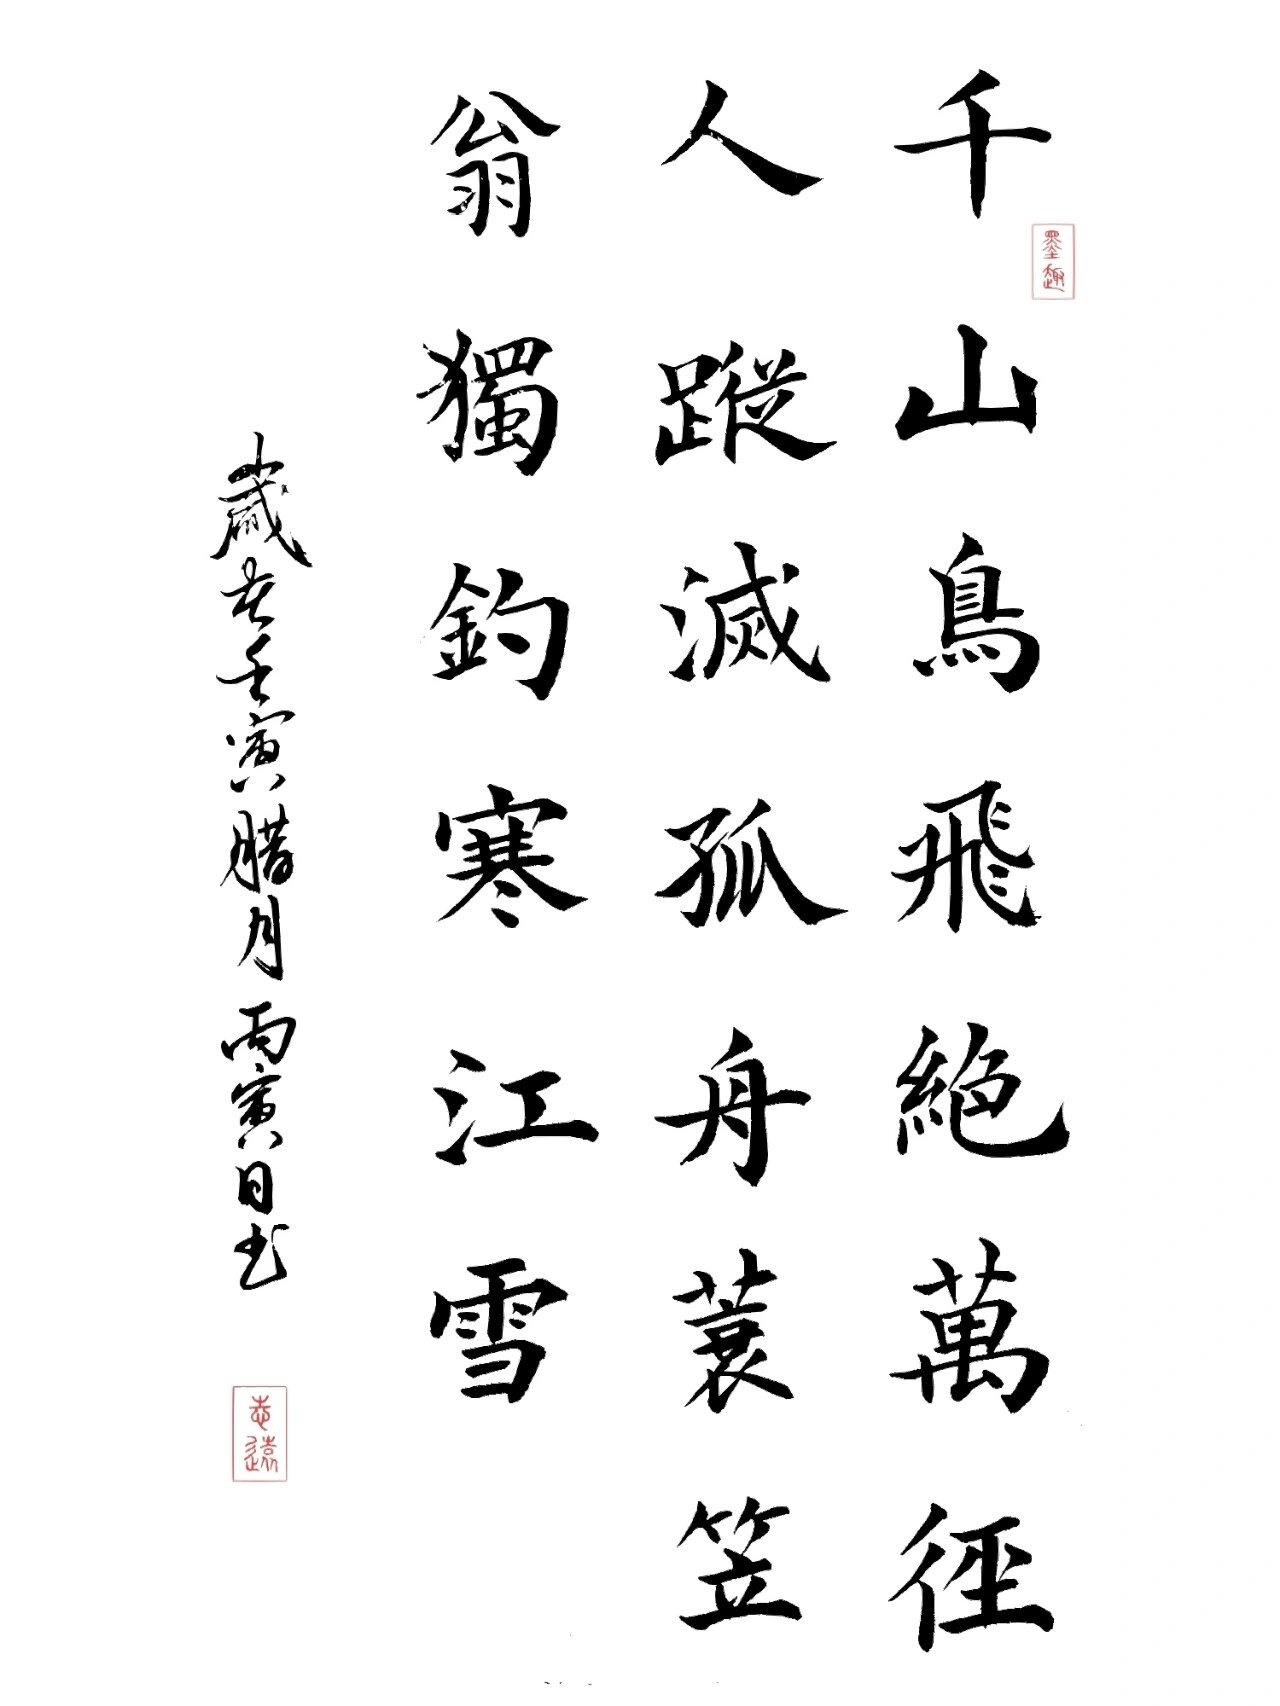 千山鳥飛絶萬徑
人蹤滅孤舟蓑笠
翁獨釣寒江雪
歲在壬寅腊月丙寅日书
墨趣
志遠